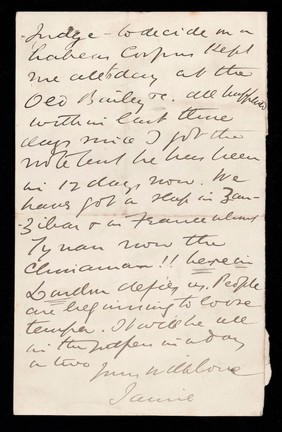 Judge - to decide on a
habeas Corpus Kept
me all to day at the
Old Bailey &c. all happened
within last three
days since I got the
note but he has been
in 12 days now. We
have got a slap in Zan-
zibar & in France about
Tynan now the
Chinaman!! here in
London defies us. People
are beginning to loose
temper. It will be all
in the papers in a day
or two
Yours with love
Jamie